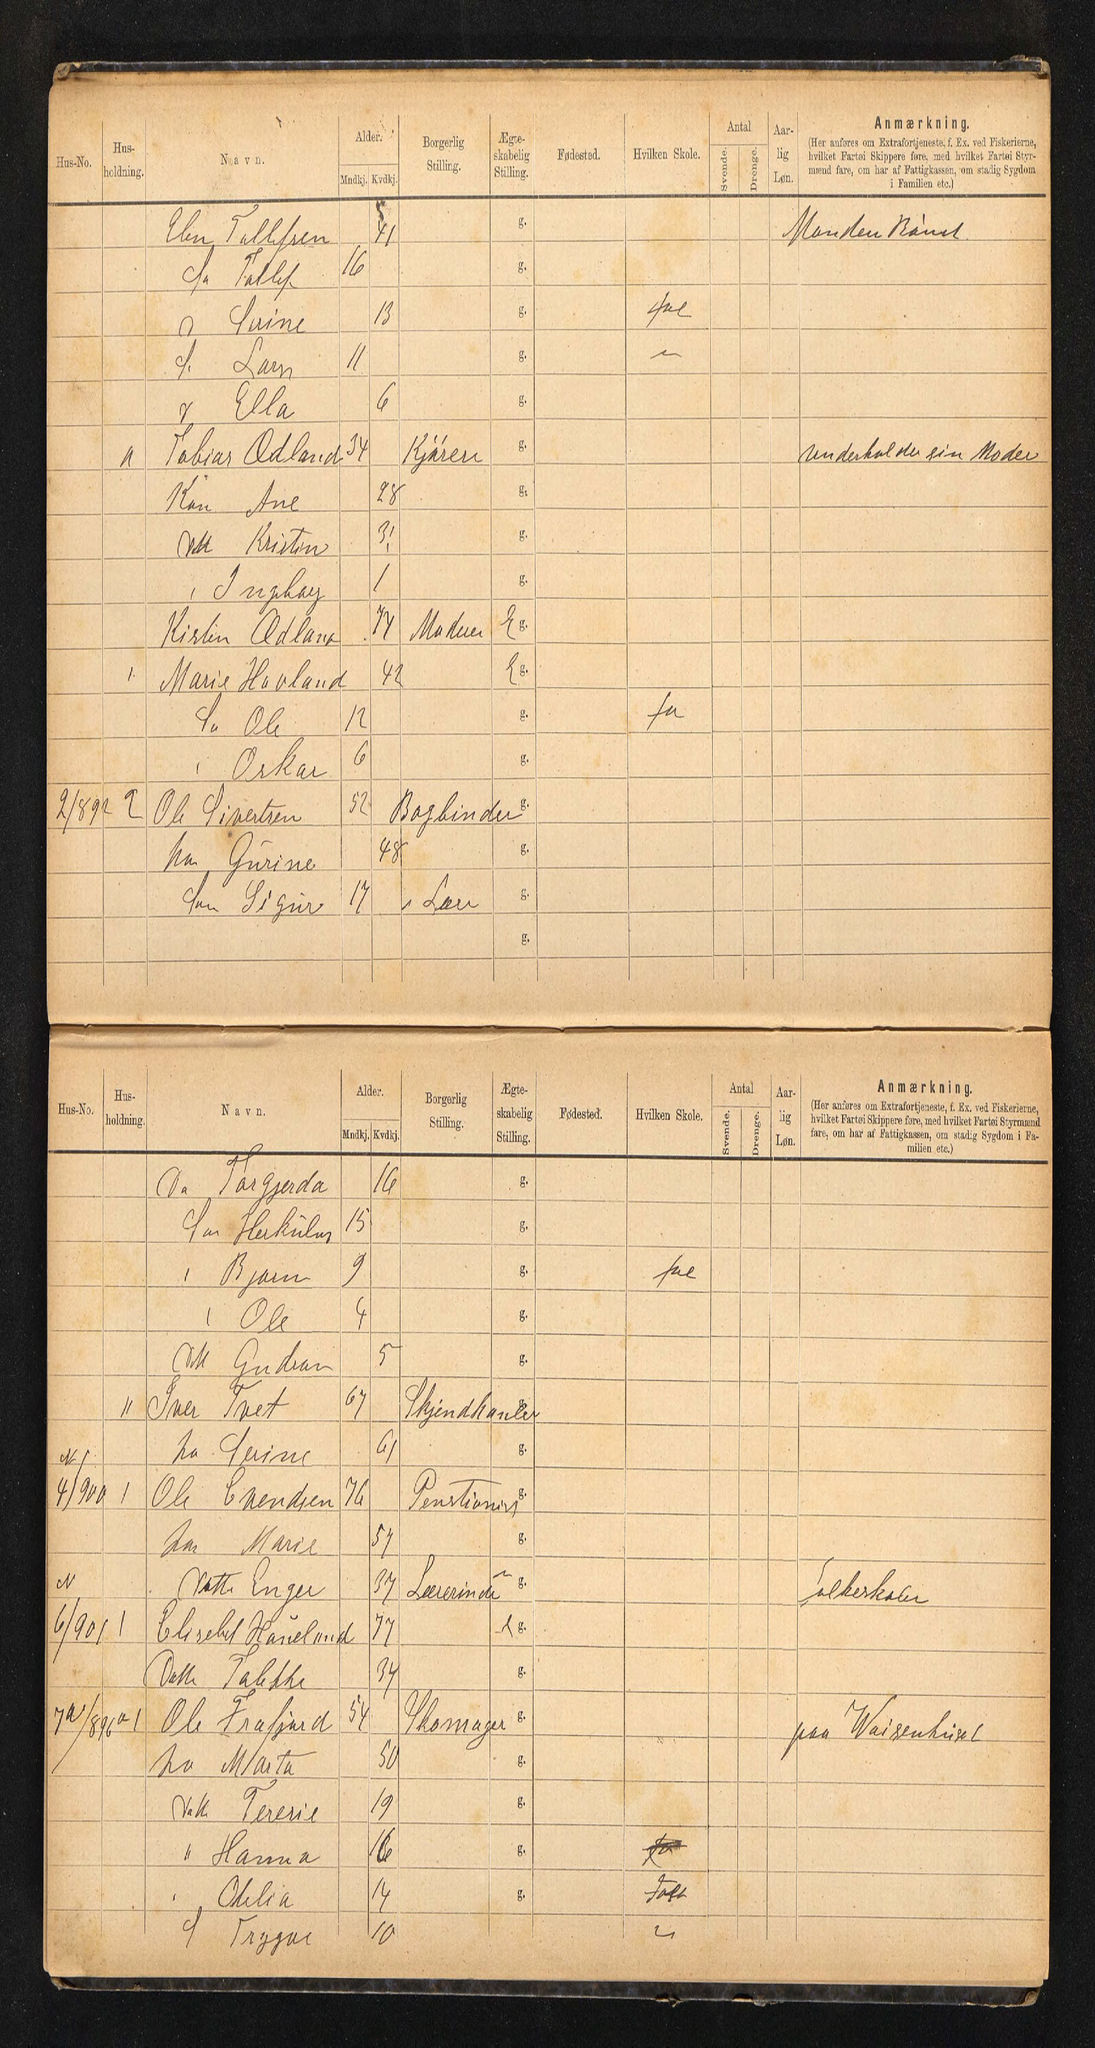 Hus-No. Hus-holdning. Navn. Alder. Mndkj. Kvdkj. Borgerlig Stilling. Ægte-skabelig Stilling. Fødested. Hvilken Skole. Antal Svende. Drenge. Aar-lig Løn. Anmærkning.
(Her anføres om Extrafortjeneste, f. Ex. ved Fiskerierne, hvilket Fartøi Skippere føre, med hvilket Fartøi Styr-mænd fare, om har af Fattigkassen, om stadig Sygdom i Familien etc.)
Elen Tollefsen 41 g. Manden
Sø Tollef 16 g.
D Serine 13 g. fol
S. Lars 11 g. "
D Ella 6 g.
" Tobias Ødland 34 Kjører g. Underholder sin Moder
Kon Ane 28 g.
Dtt Kristin 3 g.
" Ingeborg 1 g.
Kistin Ødland 74 Moderen E g.
" Marie Hovland 42 E g.
Sø Ole 12 g. fo
" Oskar 6 g.
2/892 2 Ole Sivertsen 52 Bogbinder g.
ho Gurine 48 g.
Søn Sigur 17 i Lære g.
g.
Hus-No. Hus-holdning. Navn. Alder. Mndkj. Kvdkj. Borgerlig Stilling. Ægte-skabelig Stilling. Fødested. Hvilken Skole. Antal Svende. Drenge. Aar-lig Løn. Anmærkning.
(Her anføres om Extrafortjeneste, f. Ex. ved Fiskerierne, hvilket Fartøi Skippere føre, med hvilket Fartøi Styrmænd fare, om har af Fattigkassen, om stadig Sygdom i Fa-milien etc.)
Da Torgjerda 16 g.
Søn Herkules 15 g.
" Bjarn 9 g. fol
" Ole 4 g.
Dtt Gudran 5 g.
" Iver Tvet 67 Skjendhanler g.
ho Serine 61 g.
N
4/900 1 Ole Evendsen 76 Penstionist g.
ho Marie 57 g.
N Datte Enger 37 Lærerinde " g. folkeskoler
6/901 1 Elisebet Haueland 77 E g.
Datte Tolekke 34 g.
7a/896 a 1 Ole Frafjord 54 Skomager g. paa Waisenhuset
ho Marta 50 g.
Datt Teresie 19 g.
" Hanna 16 g. fo
" Otelia 14 g. Folk
S Trygve 10 "